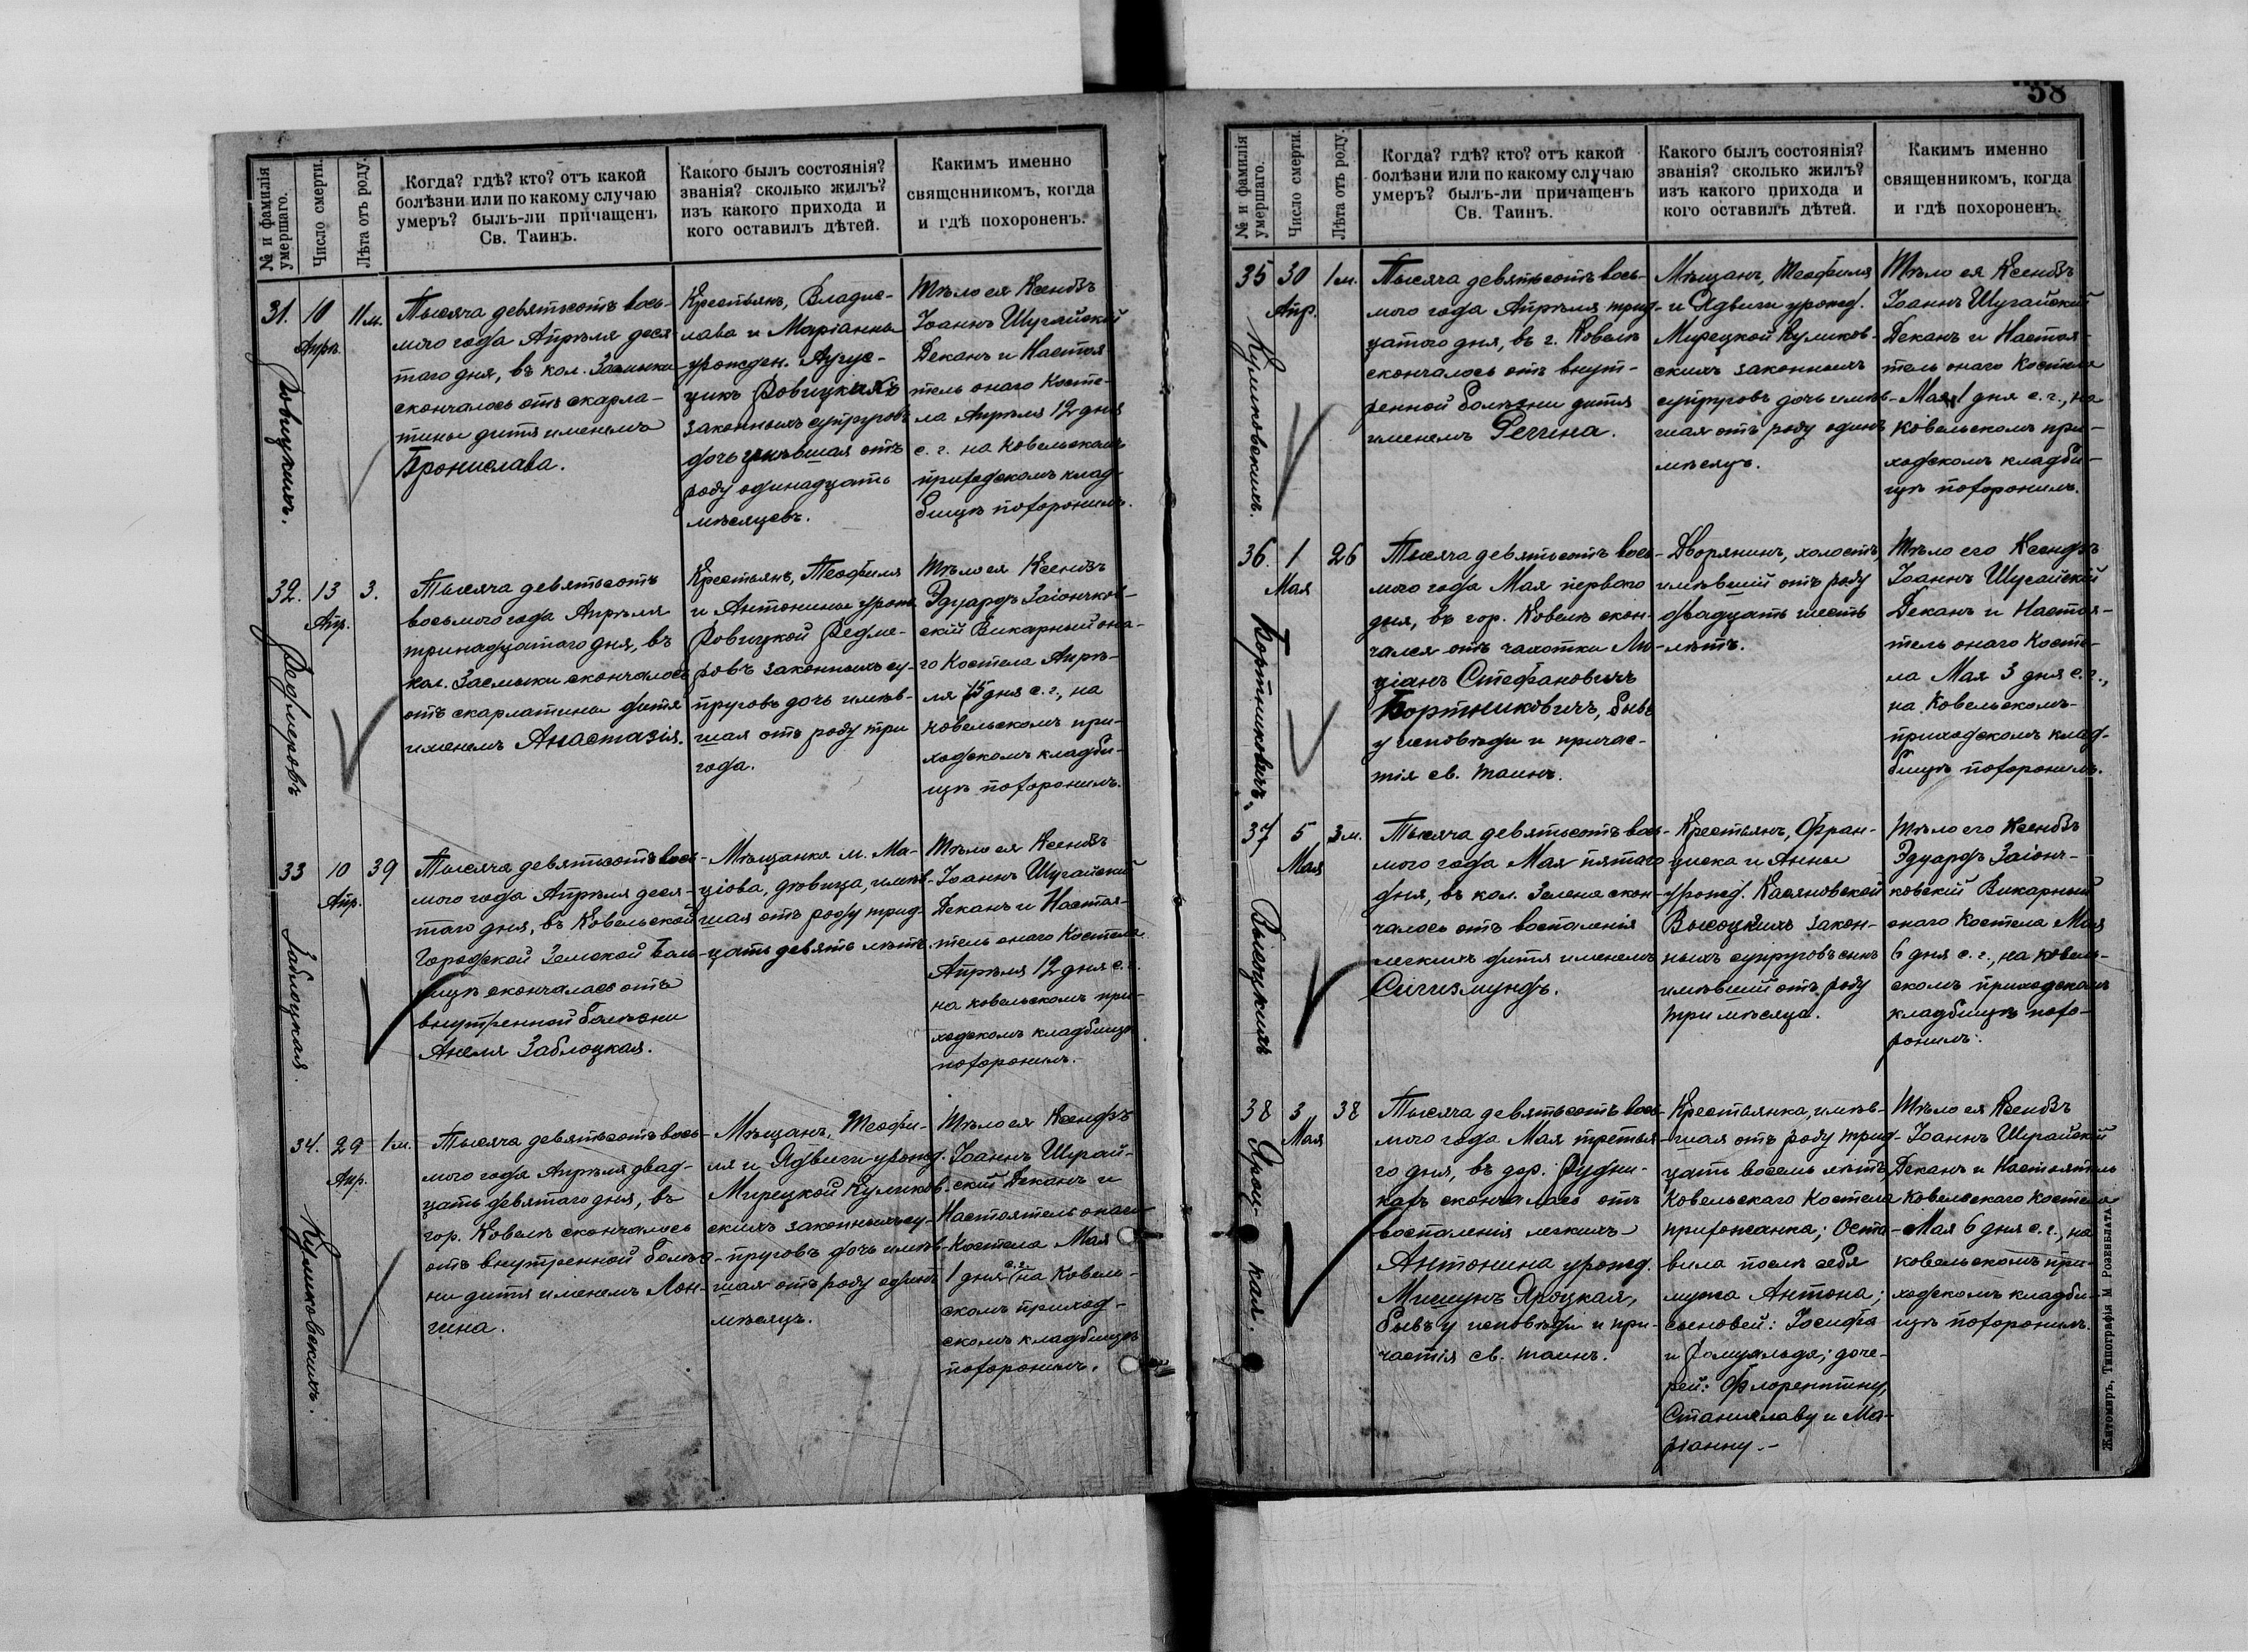 38
№ и фамилія умершаго.
Число смерти.
Лѣта отъ роду.
Когда? гдѣ? кто? отъ какой
болѣзни или по какому случаю
умеръ? былъ-ли причащенъ
Св. Таинъ.
Какого былъ состоянія?
званія? сколько жилъ?
изъ какого прихода и
кого оставилъ дѣтей.
Какимъ именно
священникомъ, когда
и гдѣ похороненъ.
31.
10
Апрѣ.
11 м.
Ровицкихъ.
Тысяча девятьсотъ вось-
мого года Апрѣля деся-
таго дня, въ кол. Засмыки
скончалось отъ скарла-
тины дитя именемъ
Бронислава.
Крестьянъ, Владис-
лава и Маріанны
урожден. Аугус-
цикъ Ровицкихъ
законныхъ супруговъ
дочь имѣвшая отъ
роду одинадцать
мѣсяцевъ.
Тѣло ея Ксендзъ
Іоаннъ Шугайскій
Деканъ и Настоя-
тель онаго Косте-
ла Апрѣля 12 дня
с. г. на Ковельскомъ
приходскомъ клад-
бищѣ похоронилъ.
32.
13
Апр.
3.
Редмеровъ
Тысяча девятьсотъ
восьмого года Апрѣля
тринадцатаго дня, въ
кол. Засмыки скончалось
отъ скарлатины дитя
именемъ Анастазія.
Крестьянъ, Теофиля
и Антонины урожд.
Ровицкой Редме-
ровъ законныхъ су-
пруговъ дочь имѣв-
шая отъ роду три
года.
Тѣло ея Ксендзъ
Эдуардъ Заіончков-
скій Викарный она-
го Костела Апрѣ-
ля 15 дня с. г., на
Ковельскомъ при-
ходскомъ кладби-
щѣ похоронилъ.
33
10
Апр.
39
Заблоцкая.
Тысяча девятьсотъ вось-
мого года Апрѣля деся-
таго дня, въ Ковельской
Городской Земской Боль-
ницѣ скончалась отъ
внутренной болѣзни
Анеля Заблоцкая.
Мѣщанка м. Ма-
ціова, дѣвица, имѣв-
шая отъ роду трид-
цать девять лѣтъ.
Тѣло ея Ксендзъ
Іоаннъ Шугайскій
Деканъ и Настоя-
тель онаго Костела
Апрѣля 12 дня с. г.
на Ковельскомъ при-
ходскомъ кладбищѣ
похоронилъ.
34.
29
Апр.
1 м.
Куликовскихъ.
Тысяча девятьсотъ вось-
мого года Апрѣля двад-
цать девятаго дня, въ
гор. Ковелѣ скончалось
отъ внутренной болѣз-
ни дитя именемъ Лон-
гина.
Мѣщанъ, Теофи-
ля и Ядвиги урожд.
Мирецкой Куликов-
скихъ законныхъ су-
пруговъ дочь имѣв-
шая отъ роду одинъ
мѣсяцъ.
Тѣло ея Ксендзъ
Іоаннъ Шугай-
скій Деканъ и
Настоятель онаго
Костела Мая
1 дня с. г. на Ковель-
скомъ приход-
скомъ кладбищѣ
похоронилъ.
№ и фамилія умершаго.
Число смерти.
Лѣта отъ роду.
Когда? гдѣ? кто? отъ какой
болѣзни или по какому случаю
умеръ? былъ-ли причащенъ
Св. Таинъ.
Какого былъ состоянія?
званія? сколько жилъ?
изъ какого прихода и
кого оставилъ дѣтей.
Какимъ именно
священникомъ, когда
и гдѣ похороненъ.
35
30
Апр.
1 м.
Куликовскихъ.
Тысяча девятьсотъ вось-
мого года Апрѣля трид-
цатого дня, въ г. Ковелѣ
скончалось отъ внут-
ренной болѣзни дитя
именемъ Регина.
Мѣщанъ, Теофиля
и Ядвиги урожд.
Мирецкой Куликов-
скихъ законныхъ
супруговъ дочь имѣв-
шая отъ роду одинъ
мѣсяцъ.
Тѣло ея Ксендзъ
Іоаннъ Шугайскій
Деканъ и Настоя-
тель онаго Костела
Мая 1 дня с. г., на
Ковельскомъ при-
ходскомъ кладби-
щѣ похоронилъ.
36.
1
Мая
26
Бортниковичъ.
Тысяча девятьсотъ вось-
мого года Мая перваго
дня, въ гор. Ковелѣ скон-
чался отъ чахотки Лю-
ціанъ Стефановичъ
Бортниковичъ, бывъ
у исповѣди и причас-
тія св. таинъ.
Дворянинъ, холостъ,
имѣвшій отъ роду
двадцать шесть
лѣтъ.
Тѣло его Ксендзъ
Іоаннъ Шугайскій
Деканъ и Настоя-
тель онаго Косте-
ла Мая 3 дня с. г.,
на Ковельскомъ
приходскомъ клад-
бищѣ похоронилъ.
37
5
Мая
3 м.
Высоцкихъ
Тысяча девятьсотъ вось-
мого года Мая пятаго
дня, въ кол. Зелена скон-
чалось отъ воспаленія
легкихъ дитя именемъ
Сигизмундъ.
Крестьянъ, Фран-
циска и Анны
урожд. Касяновской
Высоцкихъ закон-
ныхъ супруговъ сынъ
имѣвшій отъ роду
три мѣсяца.
Тѣло его Ксендзъ
Эдуардъ Заіонч-
ковскій Викарный
онаго Костела Мая
6 дня с. г., на Ковель-
скомъ приходскомъ
кладбищѣ похо-
ронилъ.
38
3
Мая
38
Яроц-
кая.
Тысяча девятьсотъ вось-
мого года Мая третья-
го дня, въ дер. Рудни-
кахъ скончалась отъ
воспаленія легкихъ
Антонина урожд.
Мишунъ Яроцкая,
бывъ у исповѣди и при-
частія св. таинъ.
Крестьянка, имѣв-
шая отъ роду трид-
цать восемь лѣтъ,
Ковельскаго Костела
прихожанка; Оста-
вила послѣ себя
мужа Антона;
сыновей: Іосифа
и Ромуальда; доче-
рей: Флорентину,
Станиславу и Ма-
ріанну.-
Тѣло ея Ксендзъ
Іоаннъ Шугайскій
Деканъ и Настоятель
Ковельскаго Костела
Мая 6 дня с. г., на
Ковельскомъ при-
ходскомъ кладби-
щѣ похоронилъ.
Житомиръ, Типографія М. Розенблата.